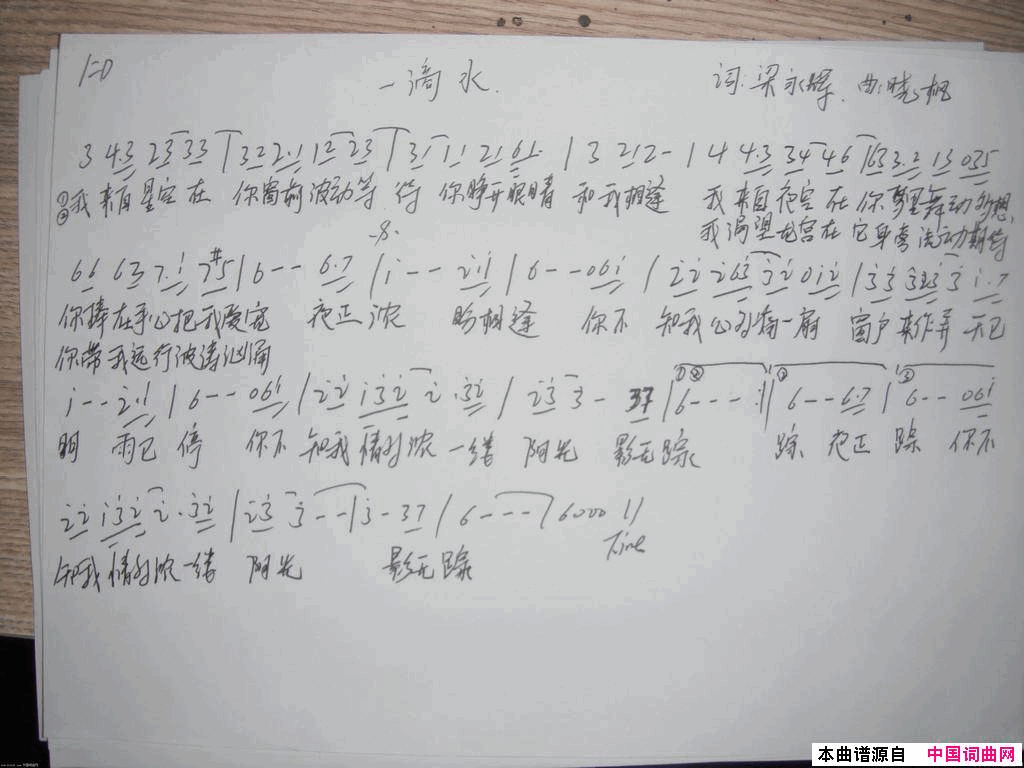 1=D 一滴水 词:梁永辉 曲:晓枫
3 4·3 23 33 | 32 2·1 12 23 | 31 11 21 61· | 3 212- | 4 4·3 34 46 | 63 3·2 13 035
①我来自星空在 你窗前波动等待 你睁开眼睛 和我相逢 我来自夜空在你梦里舞动的想
② 我渴望 在它身旁 期待
66 63 7·i 7#5 | 6 - - 6·7 | i - - 2·1 | 6 - - 06i | 22 263 32 012 | 33 323 3 i·7
你捧在手心把我爱宠 夜正浓 盼相逢 你不 知我心为有一扇 窗户来作弄 天已
你带我远行波涛汹涌
i - - 2·1 | 6 - - 061 | 22 132 2·32 | 23 3 - 37 | ①② 6 - - - :| ③ 6 - - 6·7 | 6 - - 06i
明 雨已停 你不 知我情为浓一缕 阳光 影无踪 踪 夜正 踪 你不
22 132 2·32 | 23 3 - - | 3 - 37 | 6 - - - | 6000 ||
Fine
知我情为浓一缕 阳光 影无踪
本曲谱源自 中国词曲网